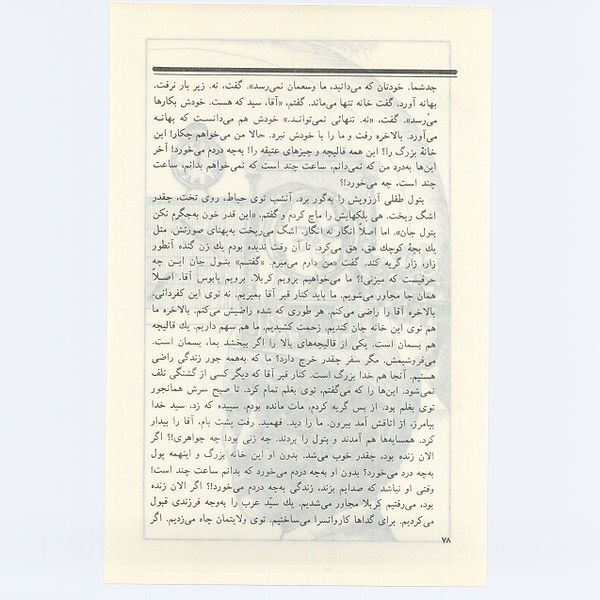 جدشما. خودتان که می‌دانید، ما وسعمان نمی‌رسد». گفت، نه. زیر بار نرفت.
بهانه آورد. گفت خانه تنها می‌ماند. گفتم، «آقا، سید که هست. خودش بکارها
می‌رسد». گفت، «نه. تنهائی نمی‌تواند.» خودش هم می‌دانست که بهانه
می‌آورد. بالاخره رفت و ما را با خودش نبرد. حالا من می‌خواهم چکار! این
خانهٔ بزرگ را؟ این همه قالیچه و چیزهای عتیقه را! به‌چه دردم می‌خورد! آخر
این‌ها به‌درد من که نمی‌دانم، ساعت چند است که نمی‌خواهم بدانم، ساعت
چند است، چه می‌خورد!؟
بتول طفلی آرزویش را به‌گور برد. آنشب توی حیاط، روی تخت، چقدر
اشگ ریخت. هی پلکهایش را ماچ کردم و گفتم، «این قدر خون به‌جگرم نکن
بتول جان». اما اصلاً انگار نه انگار. اشگ می‌ریخت به‌پهنای صورتش. مثل
یك بچهٔ کوچك هق، هق می‌کرد. تا آن رفت ندیده بودم یك زن گنده آنطور
زار، زار گریه کند. گفت «من دارم می‌میرم. «گفتم» بتول جان این چه
حرفیست که میزنی!؟ ما می‌خواهیم برویم کربلا. برویم پابوس آقا. اصلاً
همان جا مجاور می‌شویم. ما باید کنار قبر آقا بمیریم. نه توی این کفردانی.
بالاخره آقا را راضی می‌کنم. هر طوری که شده راضیش می‌کنم. بالاخره ما
هم توی این خانه جان کندیم. زحمت کشیدیم. ما هم سهم داریم. یك قالیچه
هم بسمان است. یکی از قالیچه‌های بالا را اگر ببخشد بما، بسمان است.
می‌فروشیمش. مگر سفر چقدر خرج دارد؟ ما که به‌همه جور زندگی راضی
هستیم. آنجا هم خدا بزرگ است. کنار قبر آقا که دیگر کسی از گشنگی تلف
نمی‌شود. این‌ها را که می‌گفتم، توی بغلم تمام کرد. تا صبح سرش همانجور
توی بغلم بود. از بس گریه کردم، مات مانده بودم. سپیده که زد، سید خدا
بیامرز، از اتاقش آمد بیرون. ما را دید. فهمید. رفت پشت بام، آقا را بیدار
کرد. همسایه‌ها هم آمدند و بتول را بردند. چه زنی بود! چه جواهری!؟ اگر
الان زنده بود، چقدر خوب می‌شد. بدون او این خانه بزرگ و اینهمه پول
به‌چه درد می‌خورد؟ بدون او به‌چه دردم می‌خورد که بدانم ساعت چند است!
وقتی او نباشد که صدایم بزند، زندگی به‌چه دردم می‌خورد!؟ اگر الان زنده
بود، می‌رفتیم کربلا مجاور می‌شدیم. یك سیّد عرب را به‌وجه فرزندی قبول
می‌کردیم. برای گداها کاروانسرا می‌ساختیم. توی ولایتمان چاه می‌زدیم. اگر
۷۸